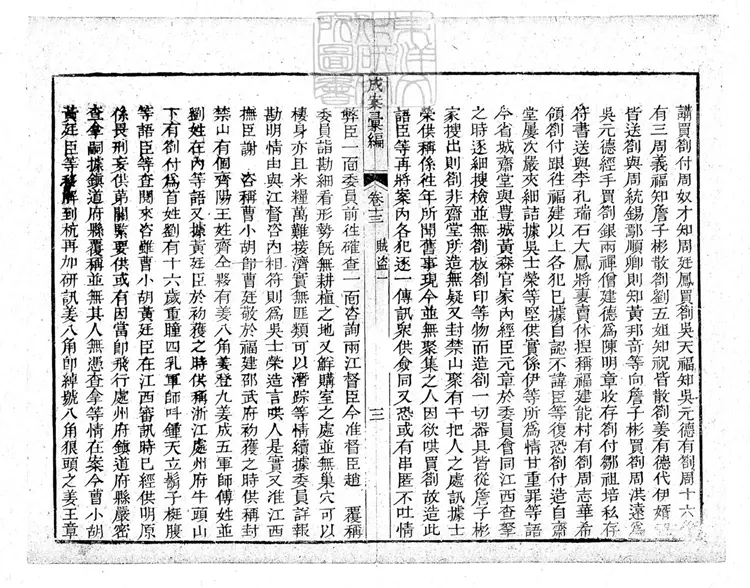 謂買劄付周奴才知周廷鳳買劄吳天福知吳元德有劄周十六
有三周義福知詹子彬散劄劉五姐知祝皆散劄姜有德代伊婿
皆送劄與周統錫鄒順卿則知黃邦奇等向詹子彬買劄周洪遠為
吳元德經手賈劄銀兩禪僧建德為陳明章收存劄付鄒祖培私存
符書送與李孔瑞石大鳳將妻賣休捏稱福建能村有劄周志華希
領劄付跟徃福建以上各犯已據自認不諱臣等復恐劄付造自齋
堂屢次嚴夾細詰據吳士榮等堅供實係伊等所為情甘重罪等語
今省城齋堂與豊城黃森官家內經臣元章於委員會同江西查拏
之時逐細搜檢並無劄板劄印等物而造劄一切器具皆從詹子彬
家搜出則劄非齋堂所造無疑又封禁山聚有千把人之處訊據士
榮供稱係徃年所聞舊事現今並無聚集之人因欲哄買劄故造此
語臣等再將案內各犯逐一傳訊衆供僉同又恐或有串匿不吐情
成案彙編
卷十三
賊盗一
三
弊臣一面委員前徃確查一面咨詢兩江督臣今准督臣趙 覆稱
委員詣勘細看形勢既無耕種之地又鮮購室之處並無巢穴可以
棲身亦且米糧萬難接濟實無匪類可以潛踪等情續據委員詳報
勘明情由與江督咨內相符則為吳士榮造言哄人是實又准江西
撫臣謝 咨稱曹小胡即曹廷敬於福建邵武府初獲之時供稱封
禁山有個齊陽王姓齊全夥有姜八角姜登九姜成五軍師傅姓並
劉姓在內等語又據黃廷臣於初獲之時供稱浙江處州府牛頭山
下有劄付為首姓劉有十六歲重瞳四乳軍師呌鍾天立鬍子梃腹
等語臣等查閱來咨雖曹小胡黃廷臣在江西審訊時已經供明原
係畏刑妄供弟關緊要供或有因當即飛行處州府鎮道府縣嚴密
查拿嗣據鎮道府縣覆稱並無其人無憑查拿等情在案今曹小胡
黃廷臣等移解到杭再加研訊姜八角即綽號八角狠頭之姜王章